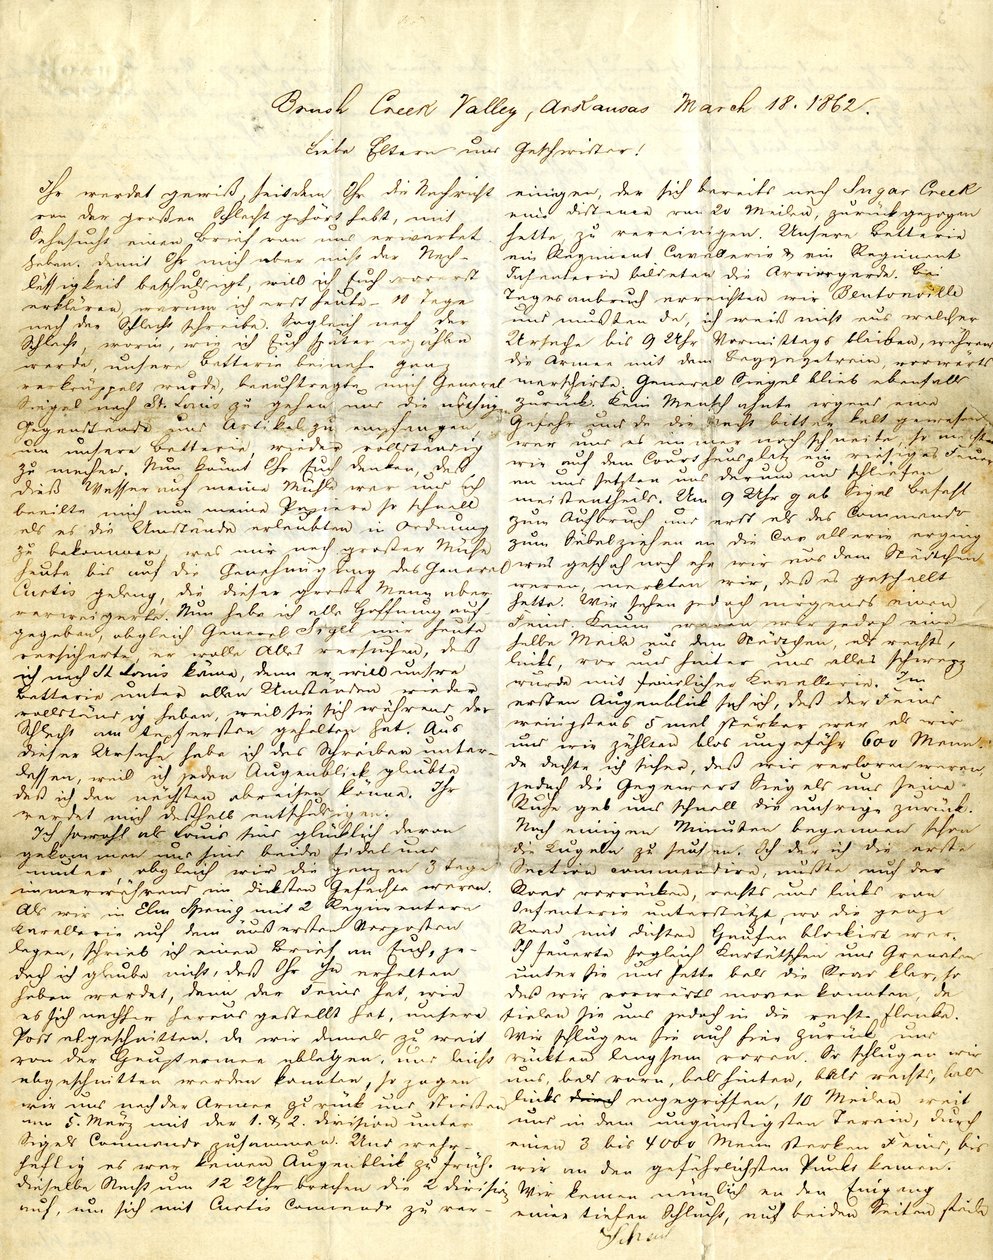 Brush Creek Valley, Arkansas March 18. 1862.
Liebe Eltern und Geschwister!
Ihr werdet gewiß, seitdem Ihr die Nachricht
von der großen Schlacht gehört habt, mit
Sehnsucht einen Brief von uns erwartet
haben. damit Ihr mich aber nicht der Nach-
lässigkeit beschuldigt, will ich Euch vorerst
erklären, warum ich erst heute – 10 Tage
nach der Schlacht schreibe. Sogleich nach der
Schlacht, worin wie ich Euch später erzählen
werde, unsere Batterie beinahe ganz
verkrüppelt wurde, beauftragte mich General
Siegel nach St. Louis zu gehen und die nöthigen
Gegenstände und Artikel zu empfangen,
um unsere Batterie wieder vollständig
zu machen. Nun könnt Ihr Euch denken, daß
dieß Wasser auf meine Mühle war und ich
beeilte mich nun meine Papiere so schnell
als es die Umstände erlaubten in Ordnung
zu bekommen, was mir nach großer Mühe
heute bis auf die Genehmigung des General
Curtis gelang, die dieser große Mann aber
verweigerte. Nun habe ich alle Hoffnung auf-
gegeben, obgleich General Sigel mir heute
versicherte er wolle Alles versuchen, daß
ich nach St Louis könne, denn er will unsre
Batterie unter allen Umständen wieder
vollständig haben, weil sie sich während der
Schlacht am tapfersten gehalten hat. Aus
dieser Ursache habe ich das Schreiben unter-
lassen, weil ich jeden Augenblick glaubte
daß ich den nächsten abreisen könne. Ihr
werdet mich deßhalb entschuldigen.
Ich sowohl als Louis sind glücklich davon
gekommen und sind beide fidel und
munter, obgleich wir die ganzen 3 Tage
immerwährend im dicksten Gefechte waren.
Als wir in Elm Spring mit 2 Regimentern
Kavallerie auf dem äußersten Vorposten
lagen, schrieb ich einen Brief an Euch, je-
doch ich glaube nicht, daß Ihr ihn erhalten
haben werdet, denn der Feind hat, wie
es sich nachher heraus gestellt hat, unsere
Post abgeschnitten. da wir damals zu weit
von der Hauptarmee ablagen, und leicht
abgeschnitten werden konnten, so zogen
wir uns nach der Armee zurück und stießen
am 5. März mit der 1. & 2. division unter
Sigels Commando zusammen. Und wahr-
haftig es war keinen Augenblick zu früh.
dieselbe Nacht um 12 Uhr brachen die 2 division
auf, um sich mit Curtis Commando zu ver-
einigen, der sich bereits nach Sugar Creek
eine distance von 20 Meilen, zurückgezogen
hatte, zu vereinigen. Unsere Batterie
ein Regiment Cavallerie & ein Regiment
Infanterie bildeten die Arriergarde. Bei
Tagesanbruch erreichten wir Bentonville
und mußten da, ich weiß nicht aus welcher
Ursache bis 9 Uhr Vormittags bleiben, während
die Armee mit dem Baggagetrain vorwärts
marschirte. General Siegel blieb ebenfalls
zurück. Kein Mensch ahnte irgend eine
Gefahr und da die Nacht bitter kalt gewesen
war und es immer noch schneite, so machten
wir auf dem Courthausplatz ein riesiges Feuer
an und setzten uns darum und schliefen
meistentheils. Um 9 Uhr gab Sigel Befehl
zum Aufbruch und erst als das Commando
zum Säbelziehen an die Cavallerie erging
was geschah noch ehe wir aus dem Städtchen
waren, merkten wir, daß es geschellt
hatte. Wir sahen jedoch nirgends einen
Feind. Kaum waren wir jedoch eine
halbe Meile aus dem Städtchen, als rechts,
links, vor und hinter uns alles schwarz
wurde mit feindlicher Kavallerie. Im
ersten Augenblick sah ich, daß der Feind
wenigstens 5 mal stärker war als wir
und wir zählten blos ungefähr 600 Mann
da dachte ich sicher, daß wir verloren waren,
jedoch die Gegenwart Siegels und seine
Ruhe gab uns schnell die unsrige zurück.
Nach einigen Minuten begannen schon
die Kugeln zu sausen. Ich der ich die erste
Section commandire, mußte auf der
Road vorrücken, rechts und links von
Infanterie unterstützt, wo die ganze
Road mit dichten Haufen blockirt war.
Ich feuerte sogleich Kartätschen und Granaten
unter sie und hatte bald die Road klar, so
daß wir vorwärts moven konnten, da
fielen sie uns jedoch in die rechte Flanke.
Wir schlugen sie auch hier zurück und
rückten langsam voran. So schlugen wir
uns, bald vorn, bald hinten, bald rechts, bald
links angegriffen, 10 Meilen weit
und in dem ungünstigsten Terain, durch
einen 3 bis 4000 Mann starken Feind, bis
wir an den gefährlichsten Punkt kamen.
Wir kamen nämlich an den Eingang
einer tiefen Schlucht, auf beiden Seiten steile